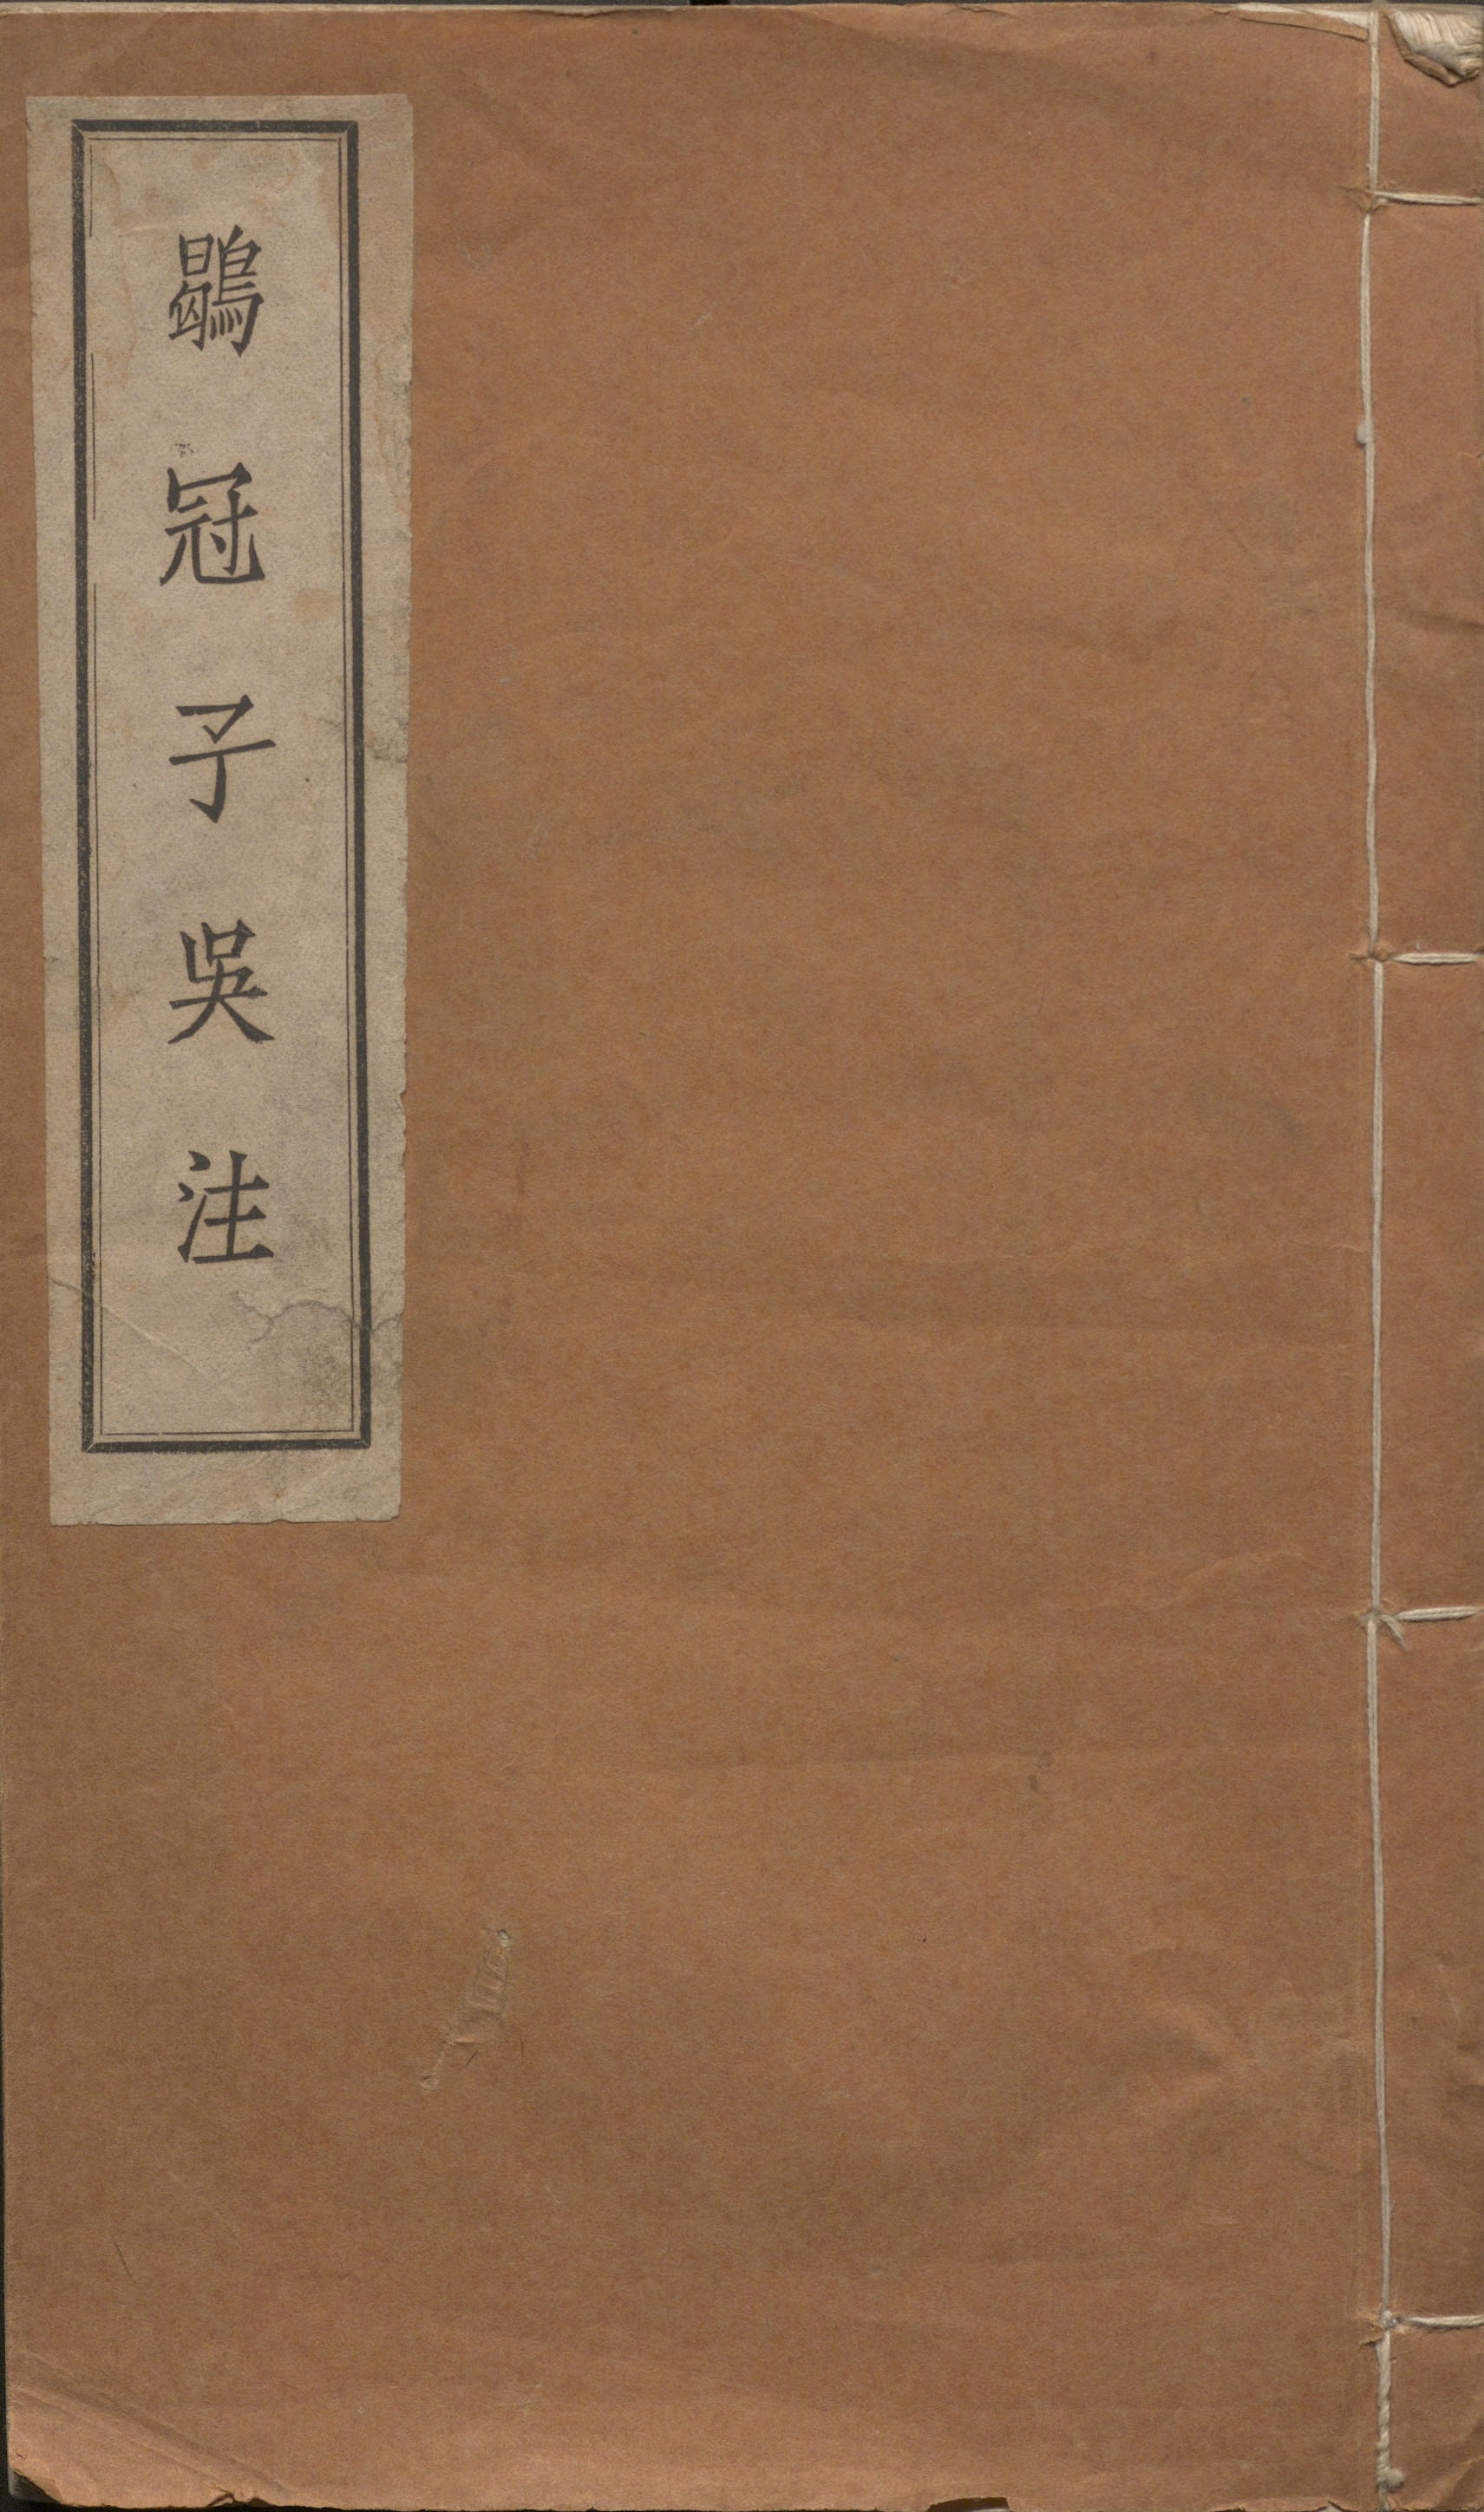 鶡冠子吳注